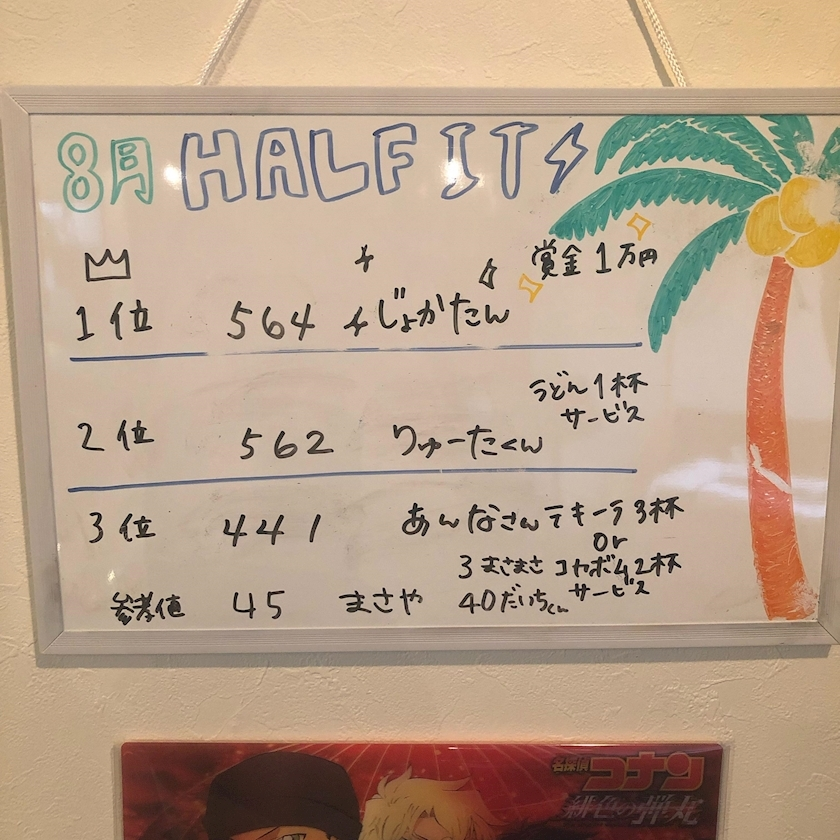 8月 HALF IT
賞金1万円
1位 564 じょかたん
うどん1杯
サービス
2位 562 りゅーたくん
3位 441 あんなさん テキーラ3杯
or
3 まさまさ コカボム2杯
参考値 45 まさや 40 だいちくん サービス
名探偵
コナン
緋色の弾丸